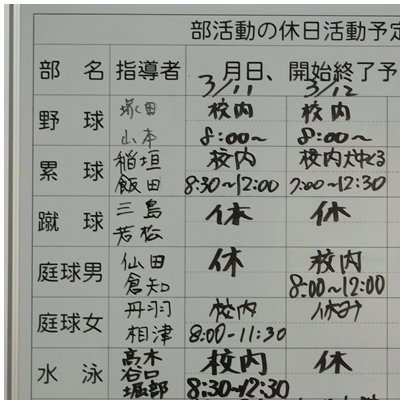 部活動の休日活動予定
部 名 指導者 月日、開始終了予
3/11 3/12
野 球 塚田 山本 校内 8:00～ 校内 8:00～
累 球 稲垣 飯田 校内 8:30～12:00 校内 7:00～12:30
蹴 球 三島 若松 休 休
庭球男 仙田 倉知 休 校内 8:00～12:00
庭球女 丹羽 相津 校内 8:00-11:30 休み
水 泳 高木 谷口 堀部 校内 8:30～12:30 休